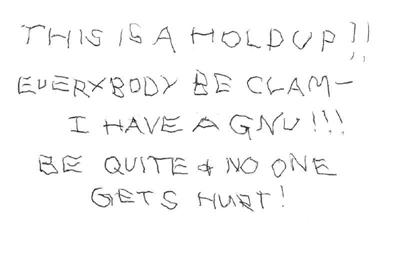 THIS IS A HOLDUP!!
EVERYBODY BE CLAM-
I HAVE A GNU!!!
BE QUITE & NO ONE
GETS HURT!